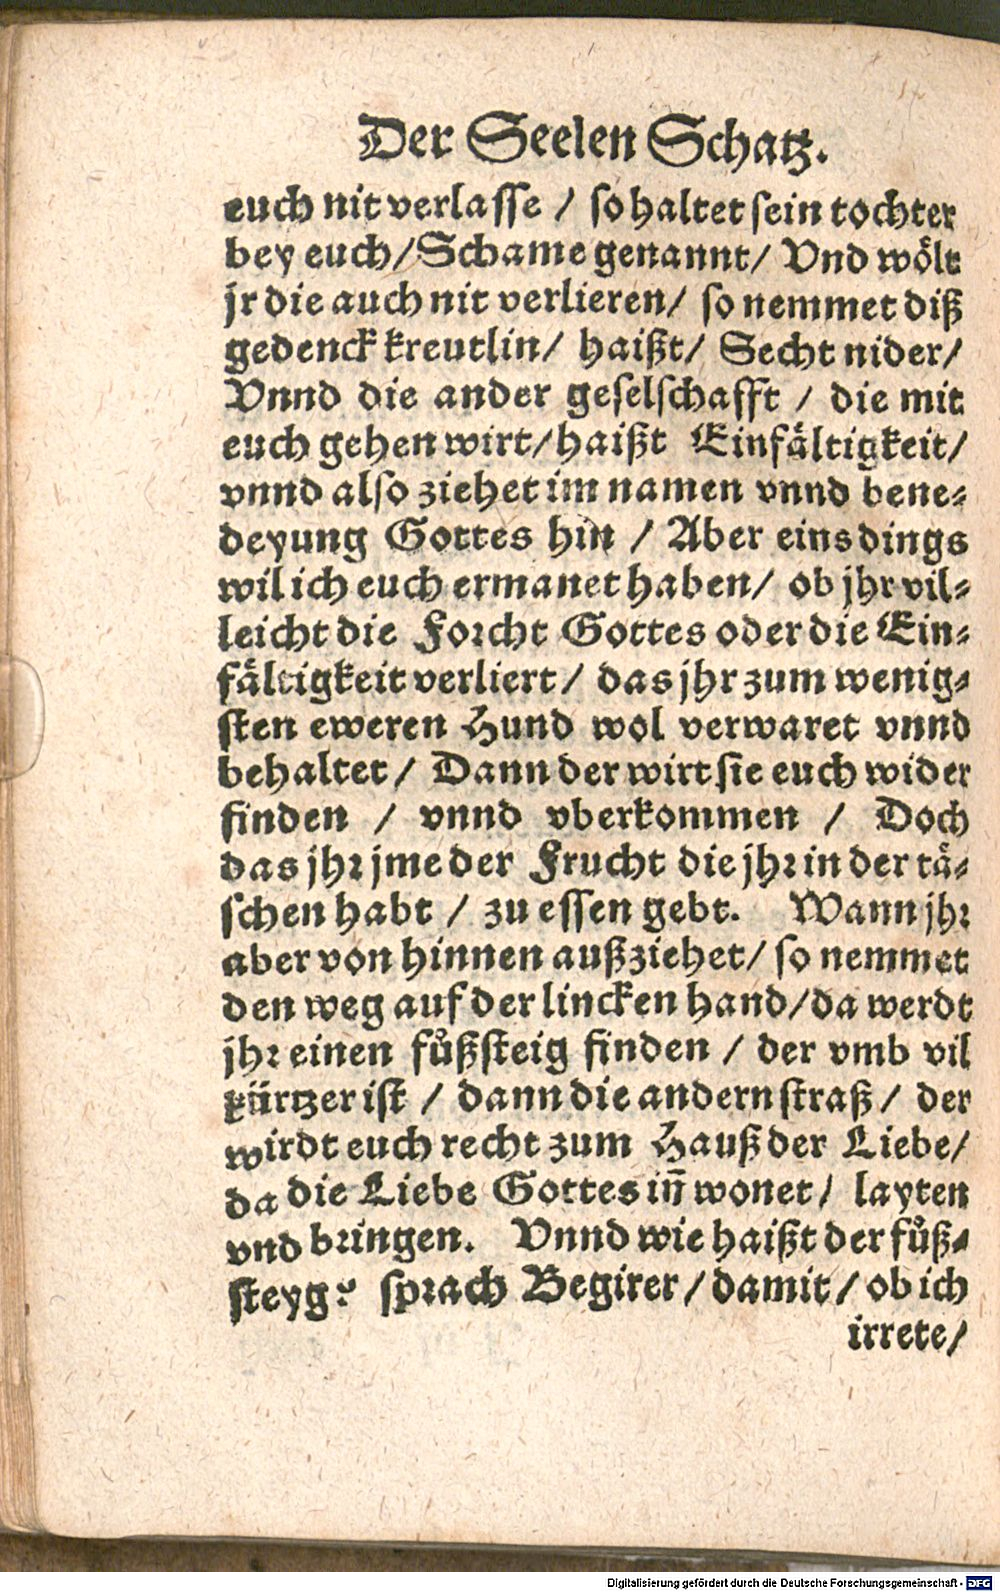 Der Seelen Schatz.
euch nit verlasse / so haltet sein tochter
bey euch/Schame genannt/ Vnd woͤlt
jr die auch nit verlieren/ so nemmet diß
gedenck kreutlin/ haißt/ Secht nider/
Vnnd die ander geselschafft / die mit
euch gehen wirt/haißt Einfaͤltigkeit/
vnnd also ziehet im namen vnnd bene⸗
deyung Gottes hin / Aber eins dings
wil ich euch ermanet haben/ ob jhr vil⸗
leicht die Forcht Gottes oder die Ein⸗
faͤltigkeit verliert/ das jhr zum wenig⸗
sten eweren Hund wol verwaret vnnd
behaltet/ Dann der wirt sie euch wider
finden / vnnd vberkommen / Doch
das jhr jme der Frucht die jhr in der taͤ⸗
schen habt / zu essen gebt. Wann jhr
aber von hinnen außziehet/ so nemmet
den weg auf der lincken hand/da werdt
jhr einen fuͦßsteig finden / der vmb vil
kürtzer ist / dann die andern straß/ der
wirdt euch recht zum Hauß der Liebe/
da die Liebe Gottes iñ wonet/ layten
vnd bringen. Vnnd wie haißt der fuͦß⸗
steyg? sprach Begirer/damit/ ob ich
irrete/
Digitalisierung gefördert durch die Deutsche Forschungsgemeinschaft - DFG